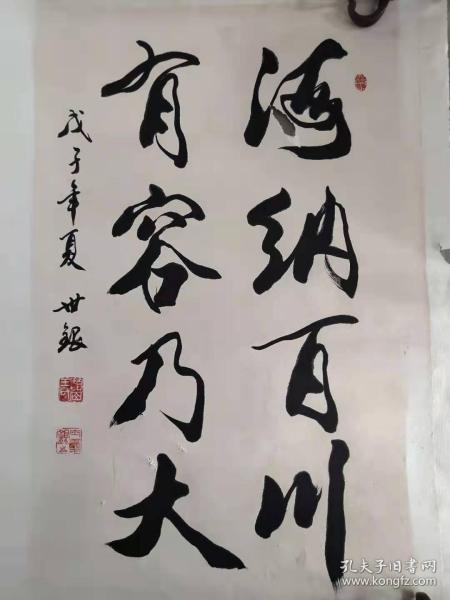 海纳百川
有容乃大
戊子年夏 世银
孔夫子旧书网
www.kongfz.com